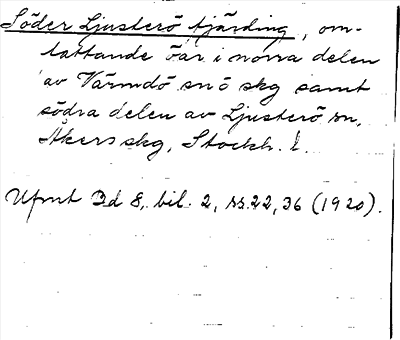 Söder Ljusterö fjärding, om-
fattande öar i norra delen
av Värmdö snö skg samt
södra delen av Ljusterö sn,
Åkers skg, Stockh. l.
Ufmt Bd 8, bil. 2, ss. 22, 36 (1920).